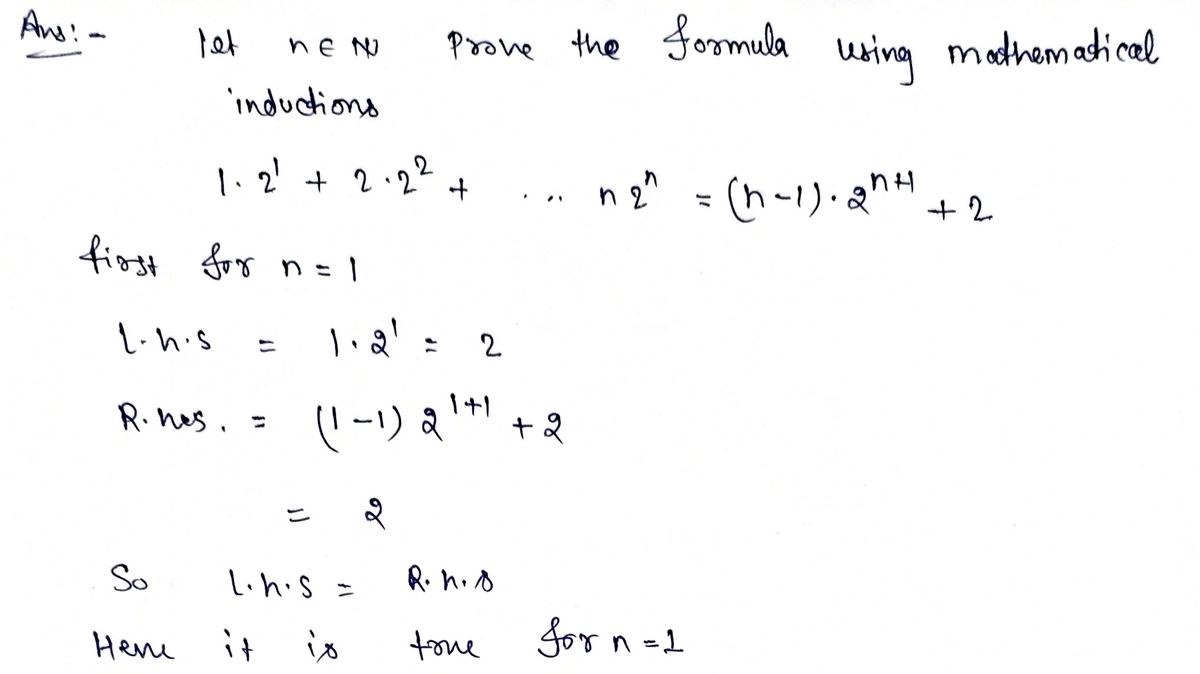 Ans:- let n ∈ N Prove the formula using mathematical
inductions
1·2¹ + 2·2² + ... n2ⁿ = (n-1)·2ⁿ⁺¹ + 2
first for n = 1
L.h.s = 1·2¹ = 2
R.hs. = (1-1) 2¹⁺¹ + 2
= 2
So L.h.s = R.h.s
Hene it is true for n = 1